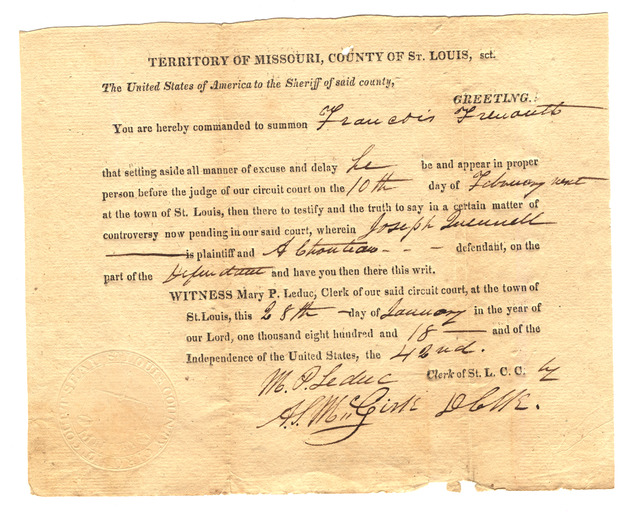 TERRITORY OF MISSOURI, COUNTY OF ST. LOUIS, sct.
The United States of America to the Sheriff of said county,
GREETING:
You are hereby commanded to summon Francois
that setting aside all manner of excuse and delay he be and appear in proper
person before the judge of our circuit court on the 10th day of February next
at the town of St. Louis, then there to testify and the truth to say in a certain matter of
controversy now pending in our said court, wherein Joseph
is plaintiff and A Chouteau - - - defendant, on the
part of the Defendant and have you then there this writ.
WITNESS Mary P. Leduc, Clerk of our said circuit court, at the town of
St. Louis, this 28th day of January in the year of
our Lord, one thousand eight hundred and 18 and of the
Independence of the United States, the 42nd.
M. P. Leduc Clerk of St. L. C. C. by
A. S. McGirk D Clk.